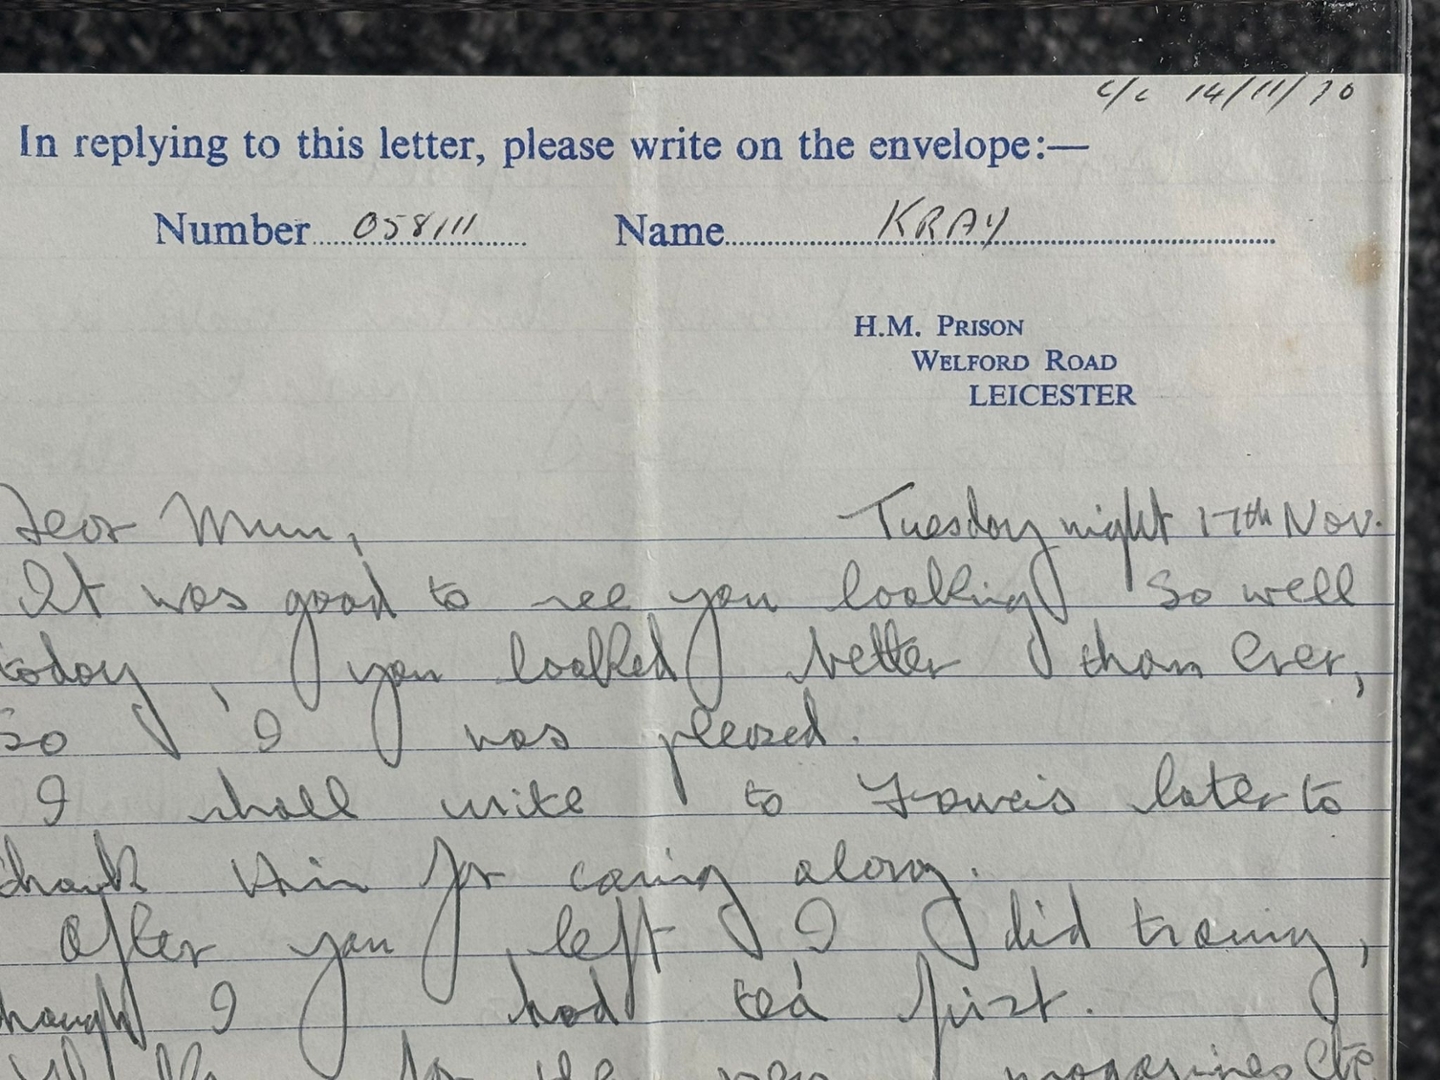 c/c 14/11/70
In replying to this letter, please write on the envelope:—
Number 058111 Name KRAY
H.M. PRISON
WELFORD ROAD
LEICESTER
Dear Mum, Tuesday night 17th Nov.
It was good to see you looking so well
today, you looked better than ever,
so I was pleased.
I shall write to Francis later to
thank him for coming along.
After you left I did training,
though I had tea first.
for the magazines etc